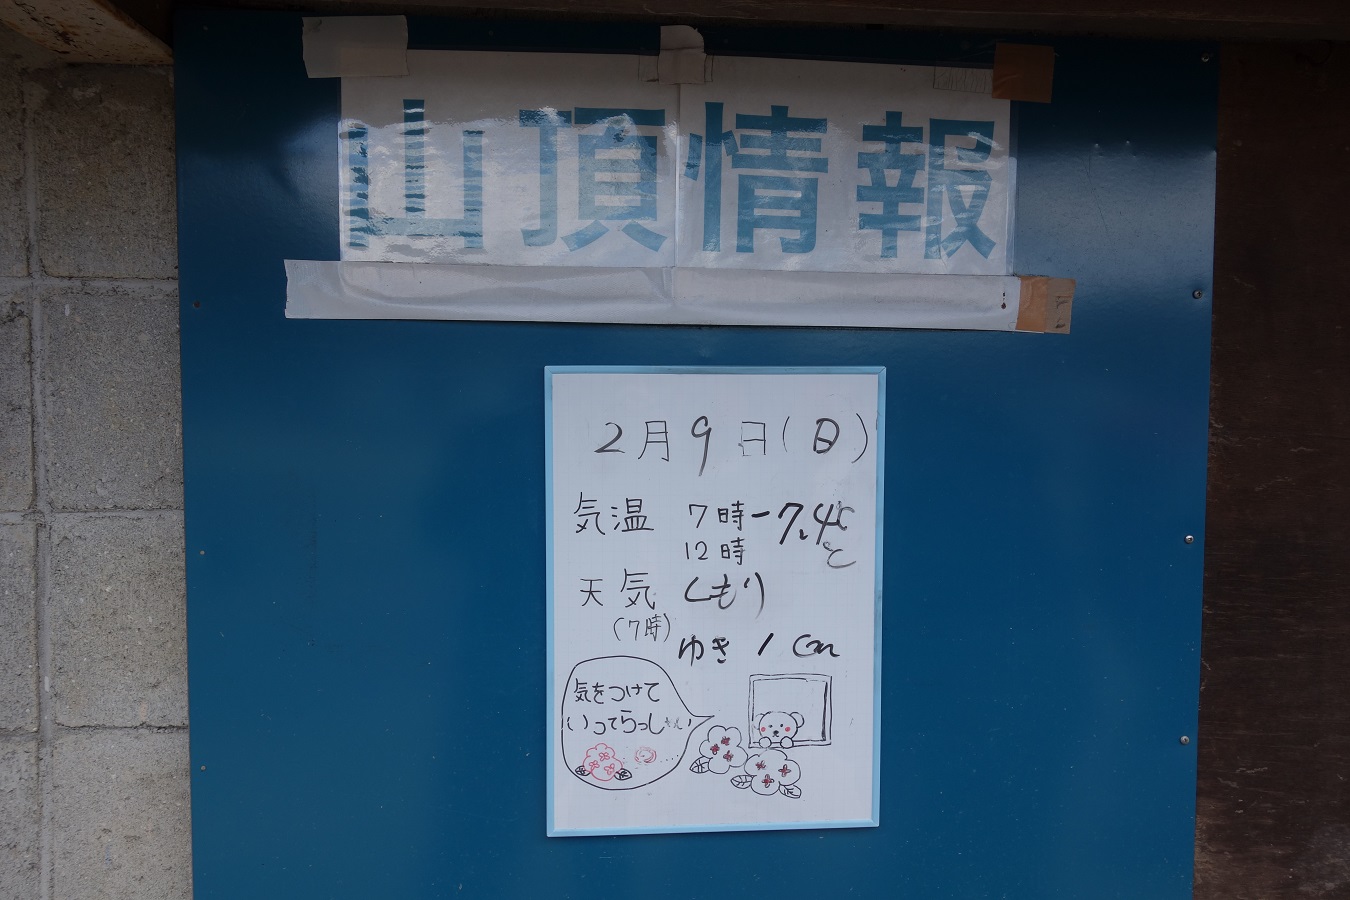 山頂情報
2月9日(日)
気温 7時 -7.4℃
12時 ℃
天気 くもり
(7時)
ゆき 1cm
気をつけて
いってらっしゃい